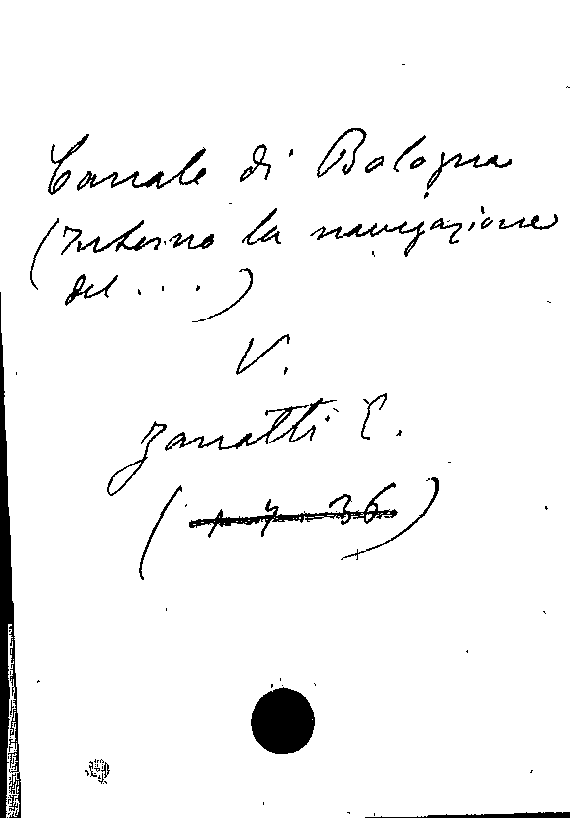 Canale di Bologna
(Intorno la navigazione
del . . . )
V.
Zanotti E.
(1 7 36)